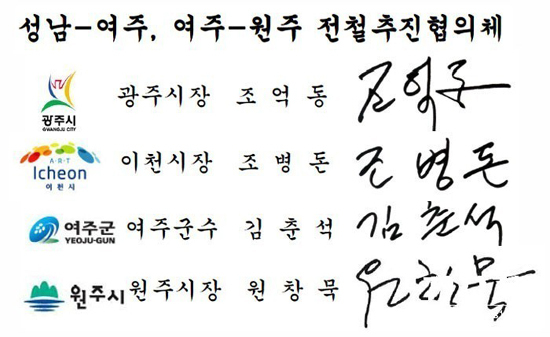 성남-여주, 여주-원주 전철추진협의체
광주시
GWANGJU CITY
광주시장 조억동 조억동
A·R·T
Icheon
이천시
이천시장 조병돈 조병돈
여주군
YEOJU-GUN
여주군수 김춘석 김춘석
원주시 원주시장 원창묵 원창묵